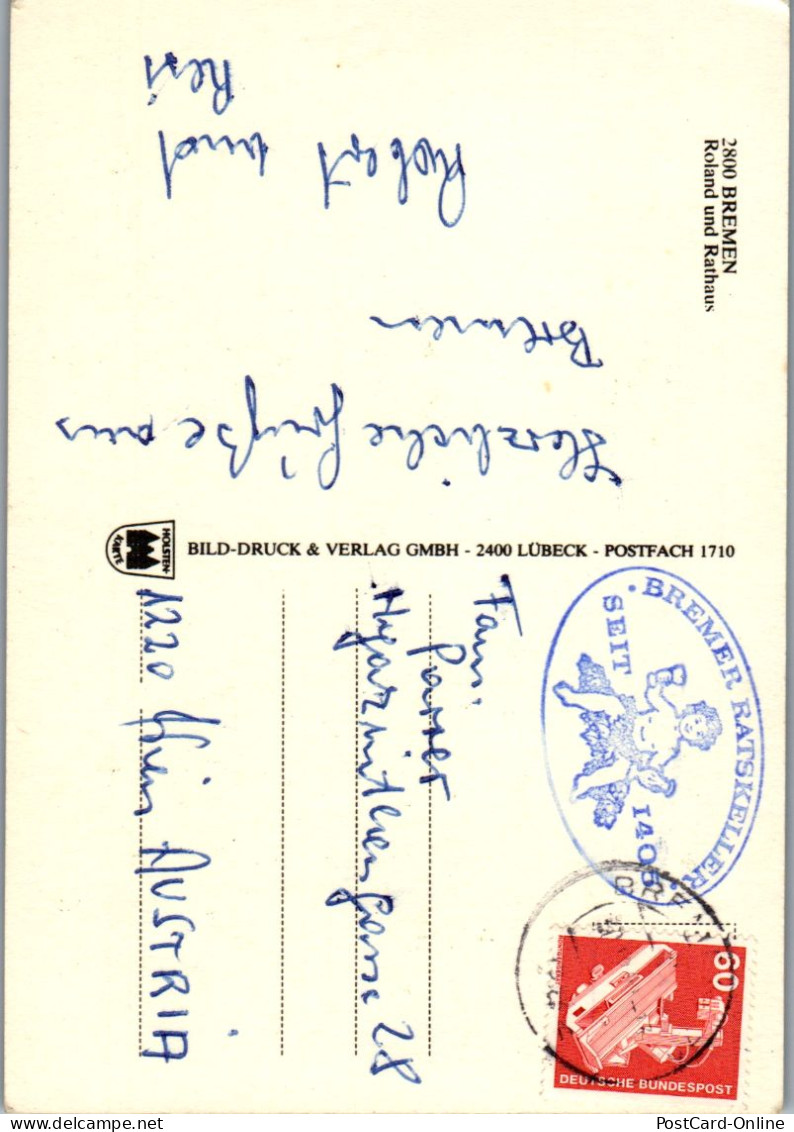 2800 BREMEN
Roland und Rathaus
Herzliche Grüße aus
Bremen
Robert und
Resi
HOLSTEN-
KARTE
BILD-DRUCK & VERLAG GMBH - 2400 LÜBECK - POSTFACH 1710
Fam.
1220 Wien AUSTRIA
· BREMER RATSKELLER ·
SEIT 1405
BREMEN
60
DEUTSCHE BUNDESPOST
PostCard-Online
www.PostCard-Online.com